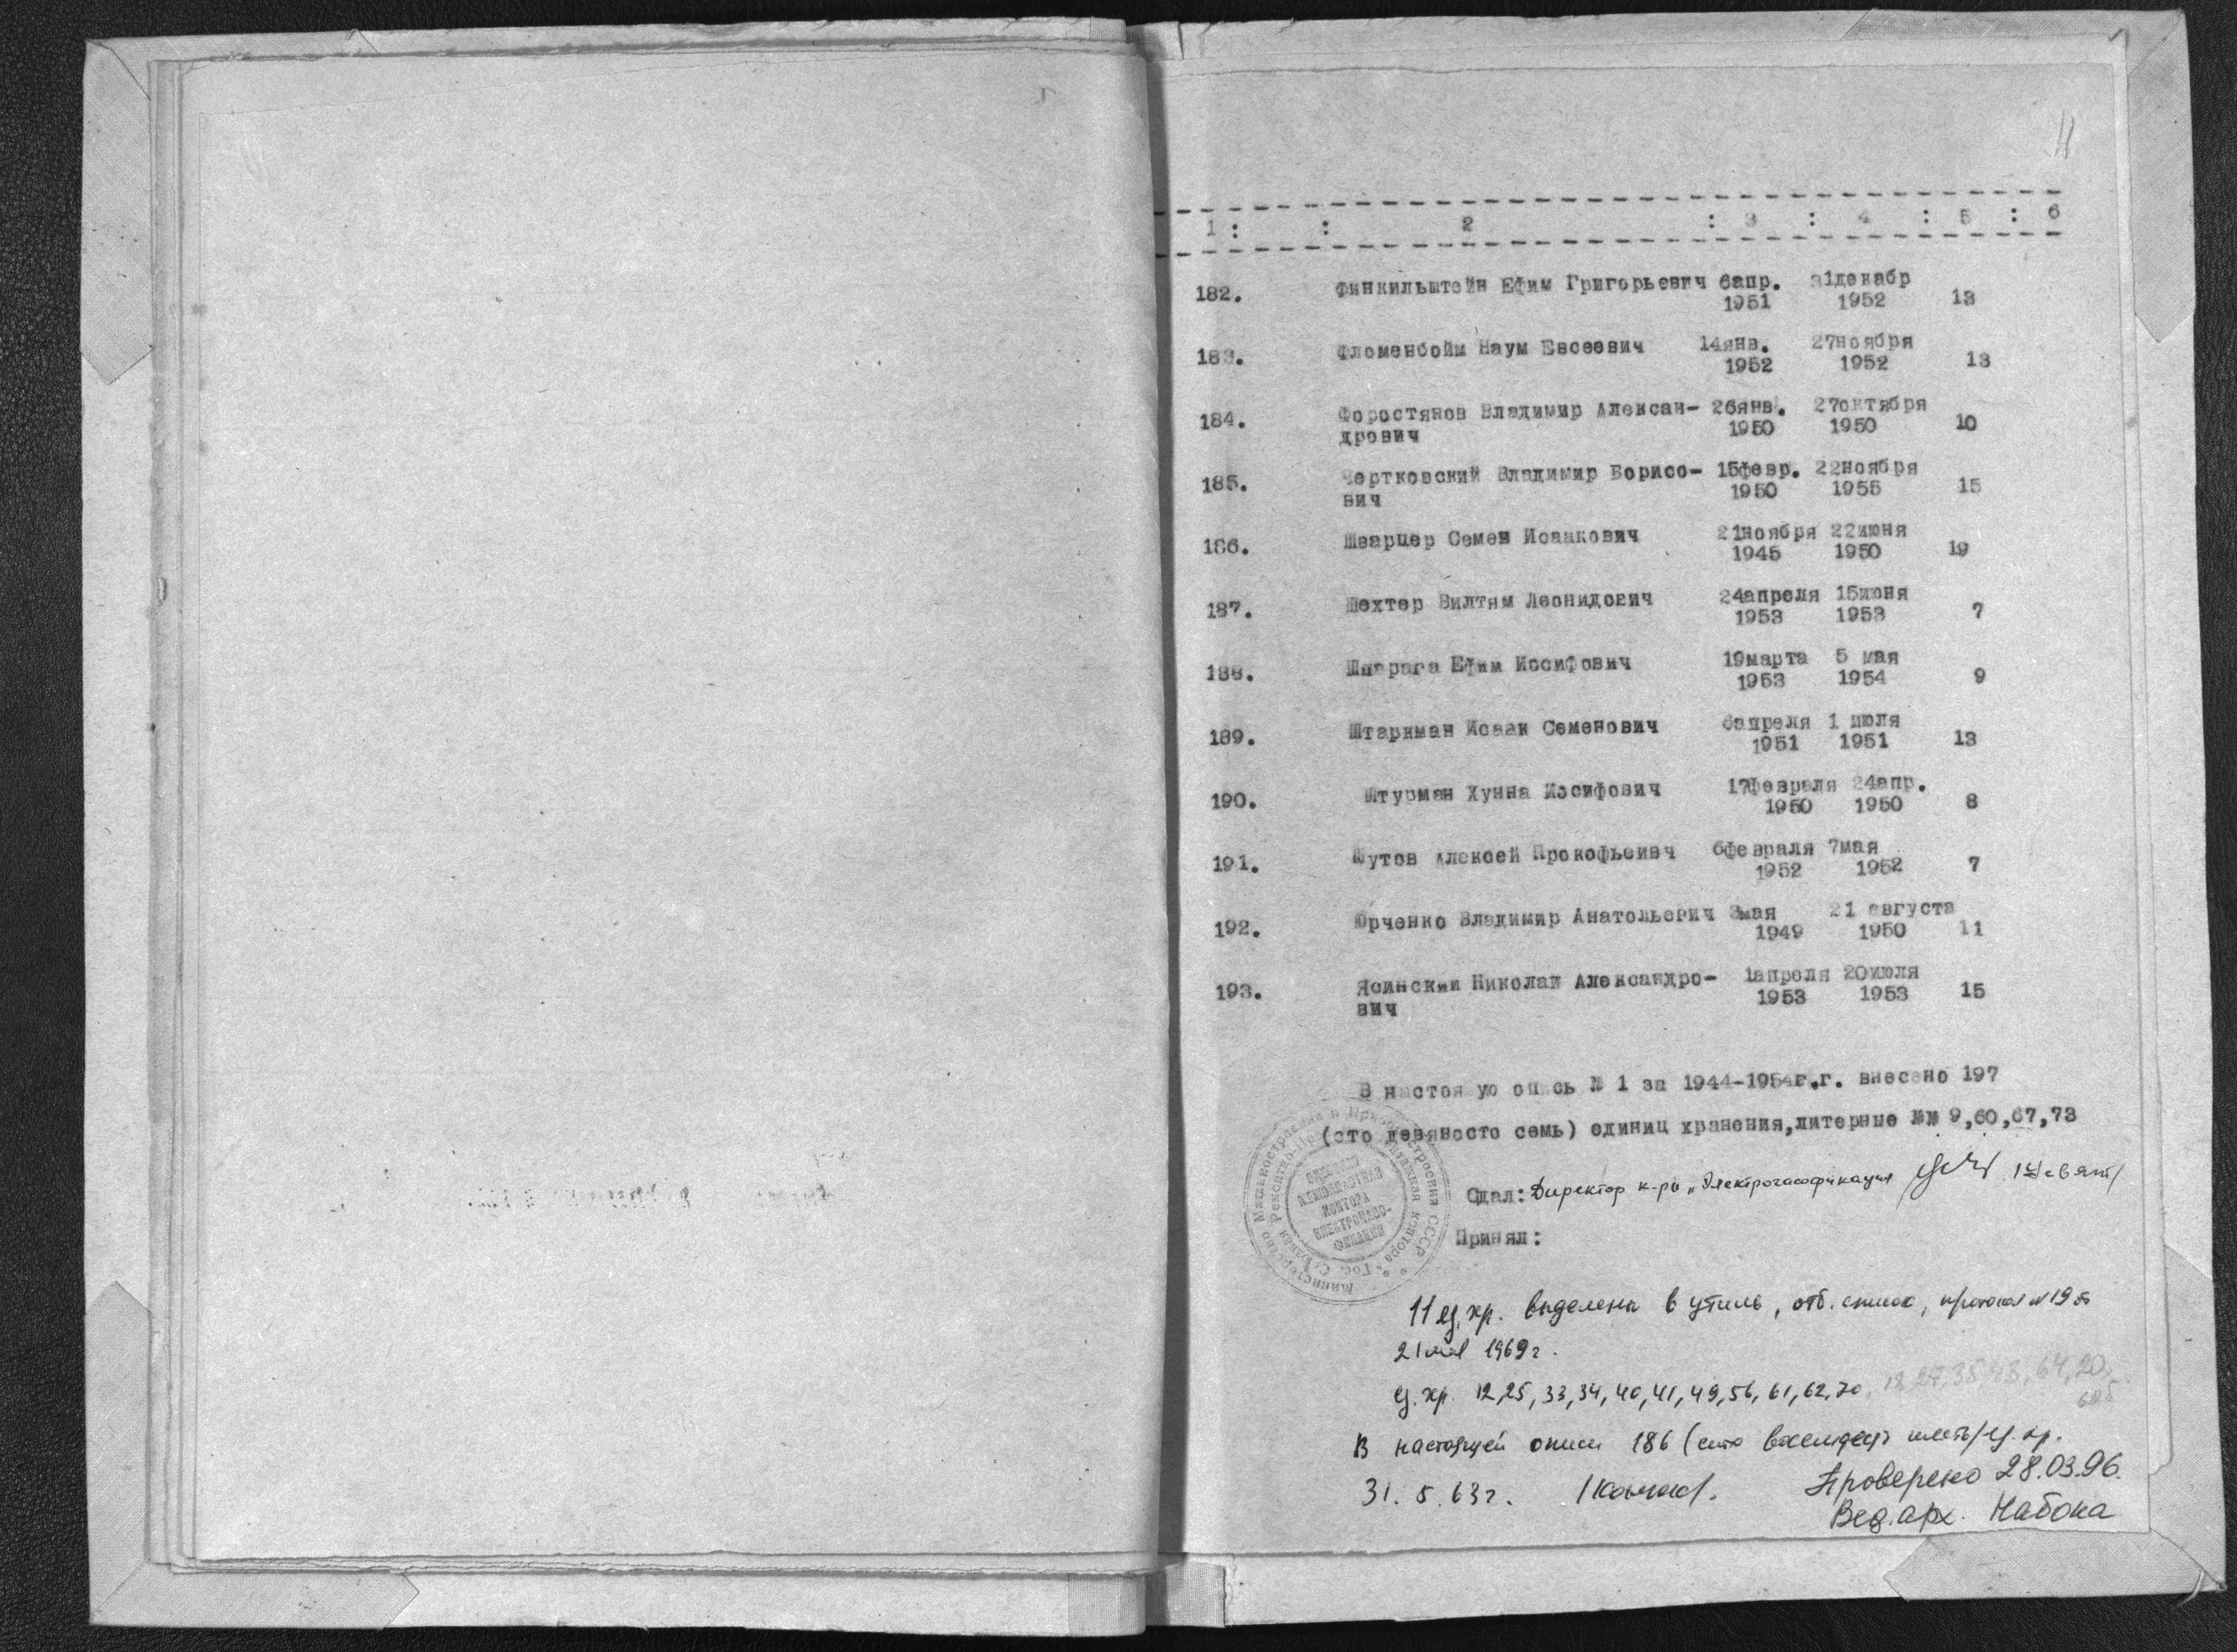 11
1 : : 2 : 3 : 4 : 5 : 6
182. Финкильштейн Ефим Григорьевич 6апр. 31декабр
1951 1952 13
183. Фломенбойм Наум Евсеевич 14янв. 27ноября
1952 1952 13
184. Форостянов Владимир Алексан- 26янв. 27октября
дрович 1950 1950 10
185. Чертковский Владимир Борисо- 15февр. 22ноября
вич 1950 1955 15
186. Шварцер Семен Исаакович 21ноября 22июня
1945 1950 19
187. Шехтер Вилтям Леонидович 24апреля 15июня
1953 1953 7
188. Шпарага Ефим Иосифович 19марта 5 мая
1953 1954 9
189. Штаркман Исаак Семенович 6апреля 1 июля
1951 1951 13
190. Штурман Хунна Иосифович 17февраля 24апр.
1950 1950 8
191. Шутов Алексей Прокофьеивч 6февраля 7мая
1952 1952 7
192. Юрченко Владимир Анатольевич 3мая 21 августа
1949 1950 11
193. Ясинский Николай Александро- 1апреля 20июля
вич 1953 1953 15
В настоя ую опись № 1 за 1944-1954г.г. внесено 197
(сто девяносто семь) единиц хранения,литерные №№ 9,60,67,73
Сдал: Директор к-ры „Электрогазофикация"
Принял:
Министерство Машиностроения и Приборостроения СССР
контора
ОДЕССКАЯ
МЕЖОБЛАСТНАЯ
КОНТОРА
ЭЛЕКТРОГАЗО-
ФИКАЦИИ
11 ед. хр. выделены в утиль, отб. список, протокол №19 от
21 мая 1969г.
ед. хр. 12,25,33,34,40,41,49,56,61,62,70, 18,27,35,43,64,20,
60б
В настоящей описи 186 (сто восемьдесят шесть) ед. хр.
31.5.63г. Проверено 28.03.96.
Вед. арх. Набока